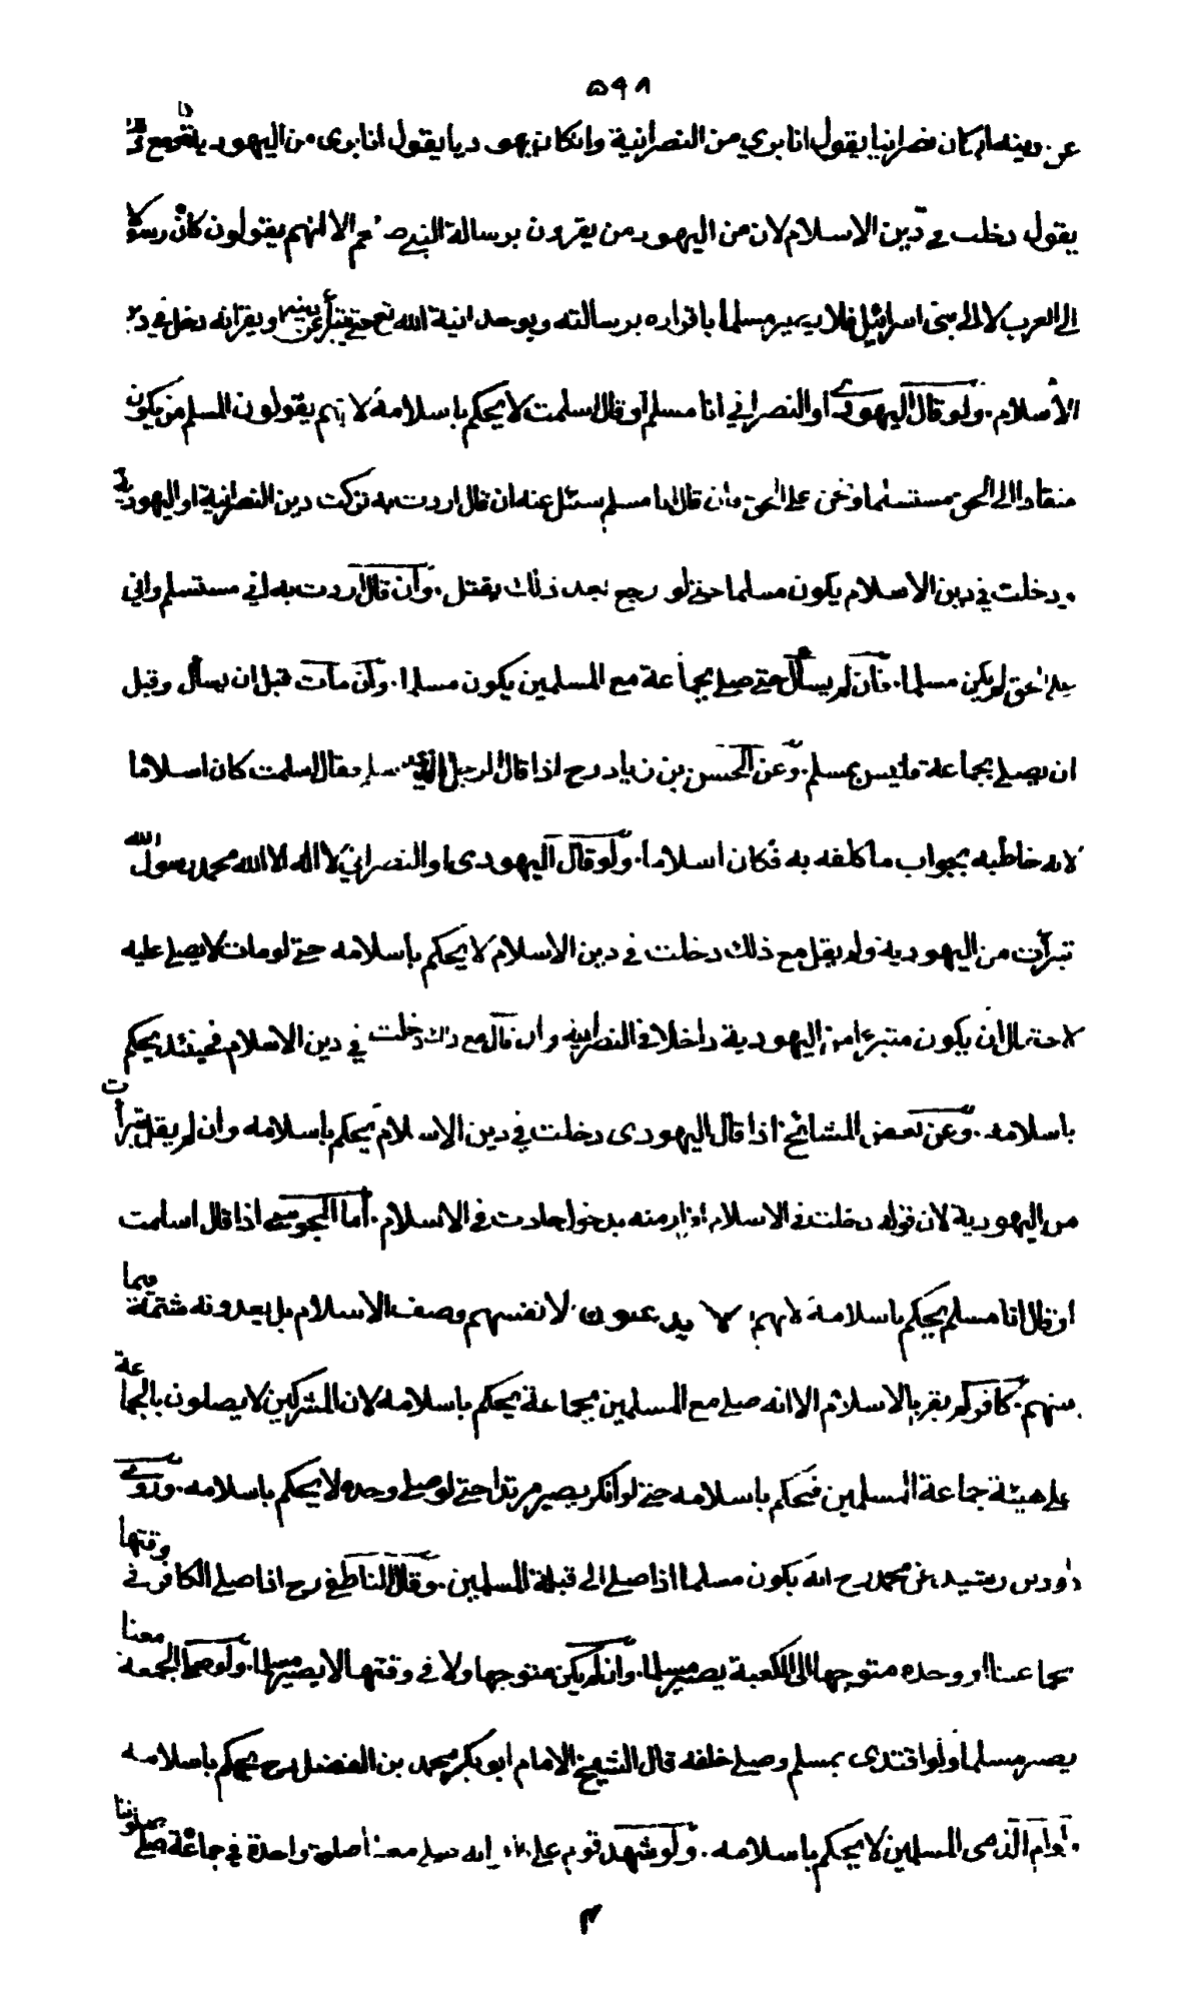 ٥٩٨
عن دينه ان كان نصرانيا يقول انا بري من النصرانية وان كان يهوديا يقول انا بري من اليهودية ثم مع
يقول دخلت في دين الاسلام لان من اليهود من يقرون برسالة النبي صلعم الا انهم يقولون كان رسولا
الى العرب لا الى بني اسرائيل فلا يصير مسلما باقراره برسالته وبوحدانية الله تع حتى يتبرأ عن دينهما ويقر انه دخل في دين
الاسلام. ولو قال اليهودي او النصراني انا مسلم او قال اسلمت لا يحكم باسلامه لانهم يقولون المسلم من يكون
منقادا الى الحق مستسلما ونحن على الحق وان قال انا مسلم سئل عنه ان قال اردت به تركت دين النصرانية او اليهودية
ودخلت في دين الاسلام يكون مسلما حتى لو رجع بعد ذلك يقتل. وان قال اردت به اني مستسلم واني
على الحق لم يكن مسلما. فان لم يسأل حتى صلى بجماعة مع المسلمين يكون مسلما. وان مات قبل ان يسأل وقبل
ان يصلي بجماعة فليس بمسلم. وعن الحسن بن زياد رح اذا قال الرجل للذمي اسلم فقال اسلمت كان اسلاما
لانه خاطبه بجواب ما كلفه به فكان اسلاما. ولو قال اليهودى او النصراني لا اله الا الله محمد رسول الله
تبرأت من اليهودية ولم يقل مع ذلك دخلت في دين الاسلام لا يحكم باسلامه حتى لو مات لا يصلى عليه
لاحتمال ان يكون متبرءا من اليهودية داخلا في النصرانية وان قال مع ذلك دخلت في دين الاسلام فحينئذ يحكم
باسلامه. وعن بعض المشائخ اذا قال اليهودى دخلت في دين الاسلام يحكم باسلامه وان لم يقل تبرأت
من اليهودية لان قوله دخلت في الاسلام اقرار منه بدخول حادث في الاسلام. اما المجوسي اذا قال اسلمت
او قال انا مسلم يحكم باسلامه لانهم لا يدعون لانفسهم وصف الاسلام بل يعدونه شتمة فيما
بينهم. كافر لم يقر بالاسلام الا انه صلى مع المسلمين بجماعة يحكم باسلامه لان المشركين لا يصلون بالجماعة
على هيئة جماعة المسلمين فيحكم باسلامه حتى لو انكر يصير مرتدا حتى لو صلى وحده لا يحكم باسلامه. وروى
داود بن رشيد عن محمد رح انه يكون مسلما اذا صلى الى قبلة المسلمين. وقال الناطفي رح اذا صلى الكافر في وقتها
بجماعتنا او وحده متوجها الى الكعبة يصير مسلما. وان لم يكن متوجها ولا في وقتها لا يصير مسلما. ولو صلى الجمعة معنا
يصير مسلما ولو اقتدى بمسلم وصلى خلفه قال الشيخ الامام ابو بكر محمد بن الفضل رح يحكم باسلامه
ولو ام الذمى المسلمين لا يحكم باسلامه. ولو شهد قوم على انه صلى معنا صلوة واحدة في جماعة صلى